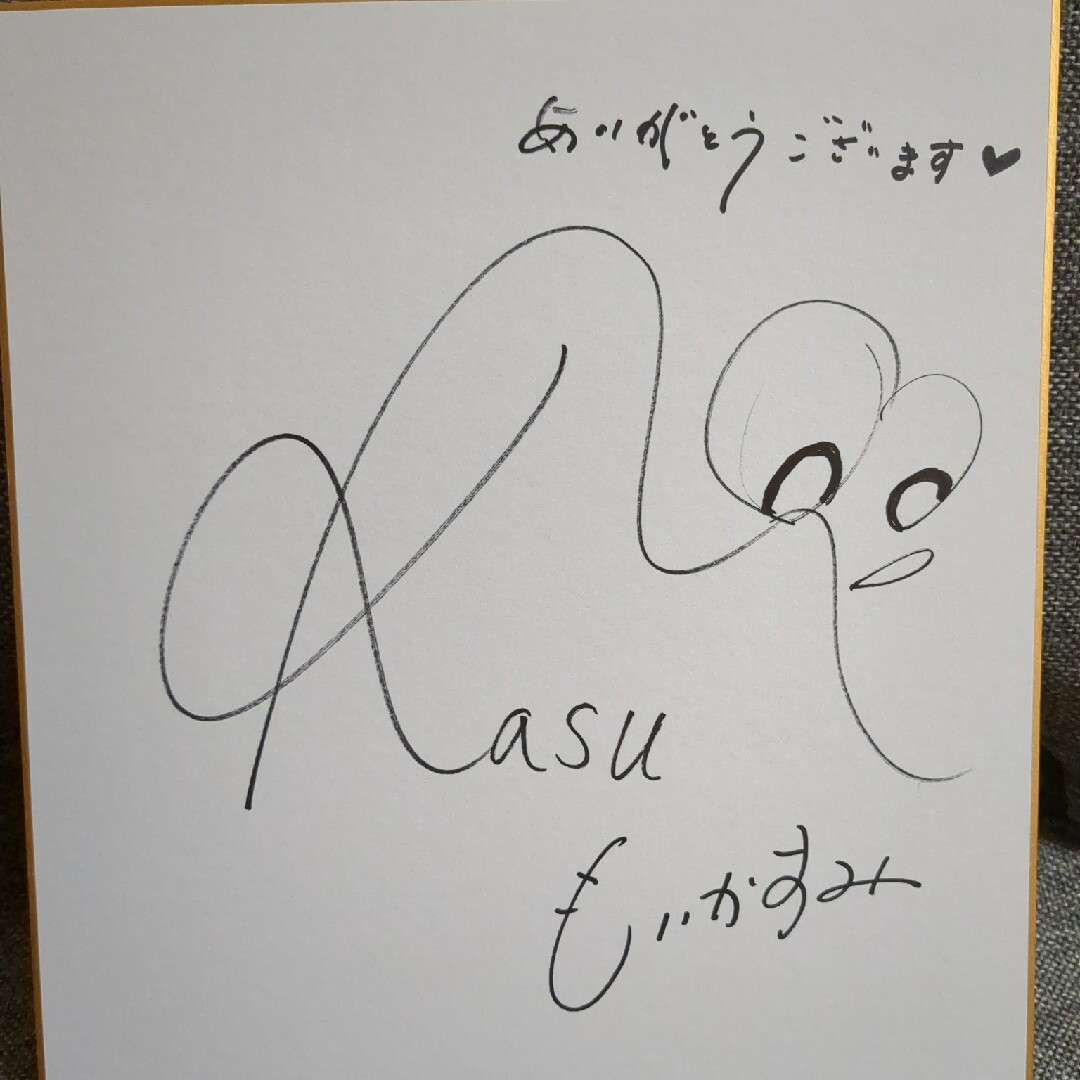 ありがとうございます♥
Kasu
もりかすみ